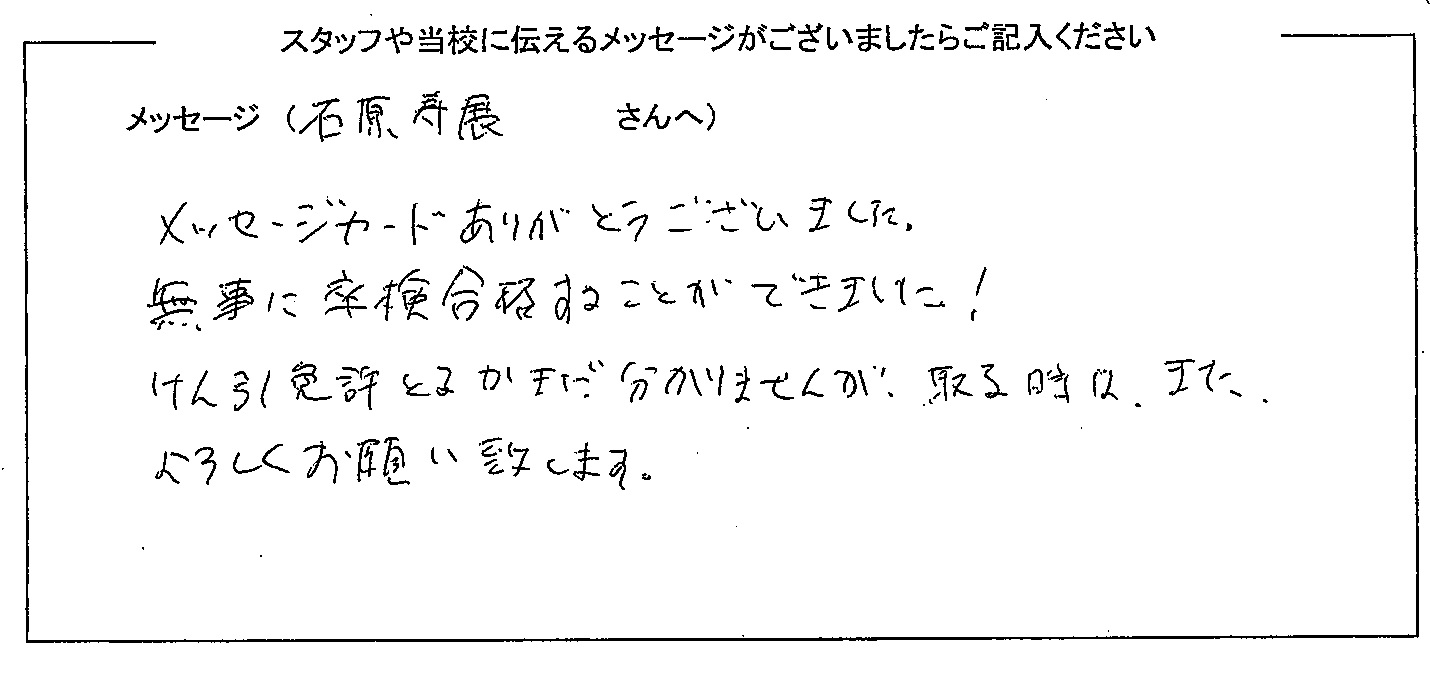 スタッフや当校に伝えるメッセージがございましたらご記入ください
メッセージ（石原寿展 さんへ）
メッセージカードありがとうございました。
無事に卒検合格することができました！
けん引免許とるかまだ分かりませんが、取る時は、また、
よろしくお願い致します。